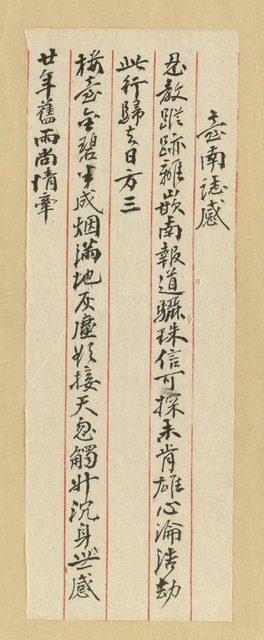 臺南誌感
忍教蹤跡離嵌南報道驪珠信可探未肯雄心淪浩劫
此行歸去日方三
樓臺金碧半成烟滿地灰塵欲接天忽觸升沉身世感
廿年舊雨尚情牽